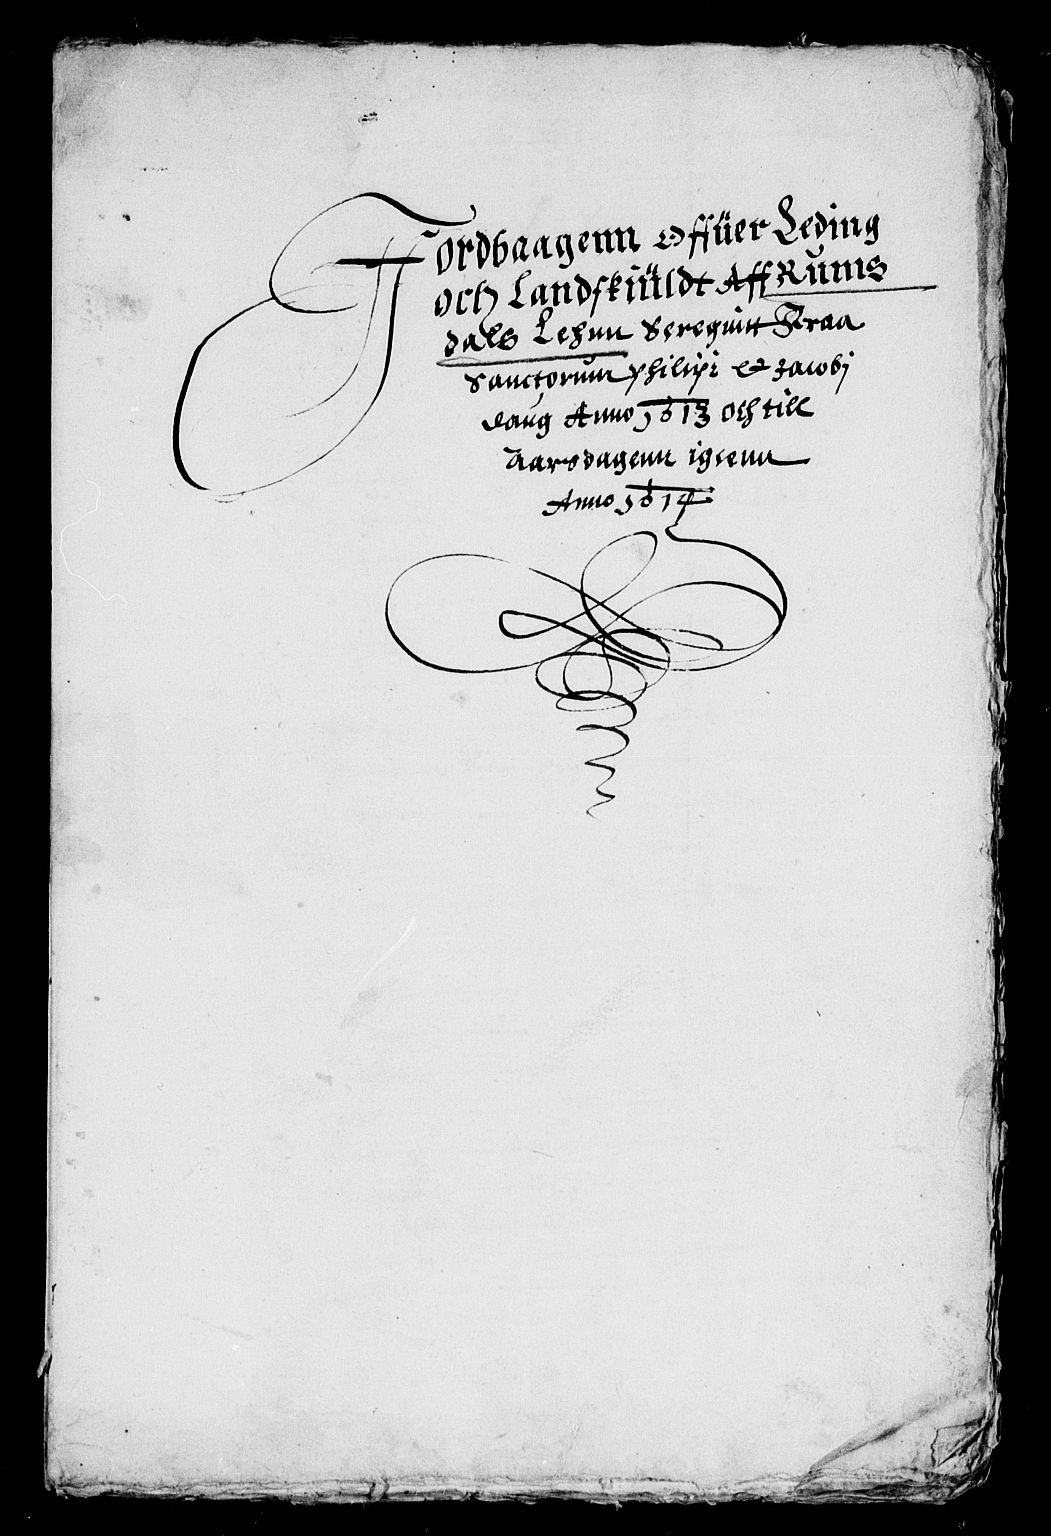 Jordbaagenn Offüer Leding
och Landskiüldt Aff Rums
dals Lehnn Bereguitt Fraa
Sanctorum philipi et Jacobj
daug Anno 1613 Och till
Aarsdagenn igienn
Anno 1614